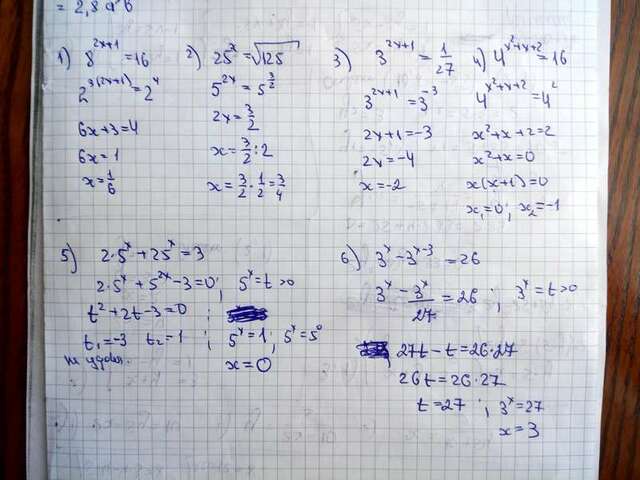 = 2,8 a b
1) 8^{2x+1} = 16
2^{3(2x+1)} = 2^4
6x+3=4
6x=1
x=\frac{1}{6}
2) 25^x = \sqrt{125}
5^{2x} = 5^{\frac{3}{2}}
2x = \frac{3}{2}
x = \frac{3}{2} : 2
x = \frac{3}{2} \cdot \frac{1}{2} = \frac{3}{4}
3) 3^{2x+1} = \frac{1}{27}
3^{2x+1} = 3^{-3}
2x+1 = -3
2x = -4
x = -2
4) 4^{x^2+x+2} = 16
4^{x^2+x+2} = 4^2
x^2+x+2=2
x^2+x=0
x(x+1)=0
x_1=0; x_2=-1
5) 2·5^x + 25^x = 3
2·5^x + 5^{2x} - 3 = 0; 5^x = t > 0
t^2 + 2t - 3 = 0;
t_1 = -3 t_2 = 1; 5^x = 1; 5^x = 5^0
x = 0
6) 3^x - 3^{x-3} = 26
3^x - \frac{3^x}{27} = 26; 3^x = t > 0
27t - t = 26·27
26t = 26·27
t = 27; 3^x = 27
x = 3